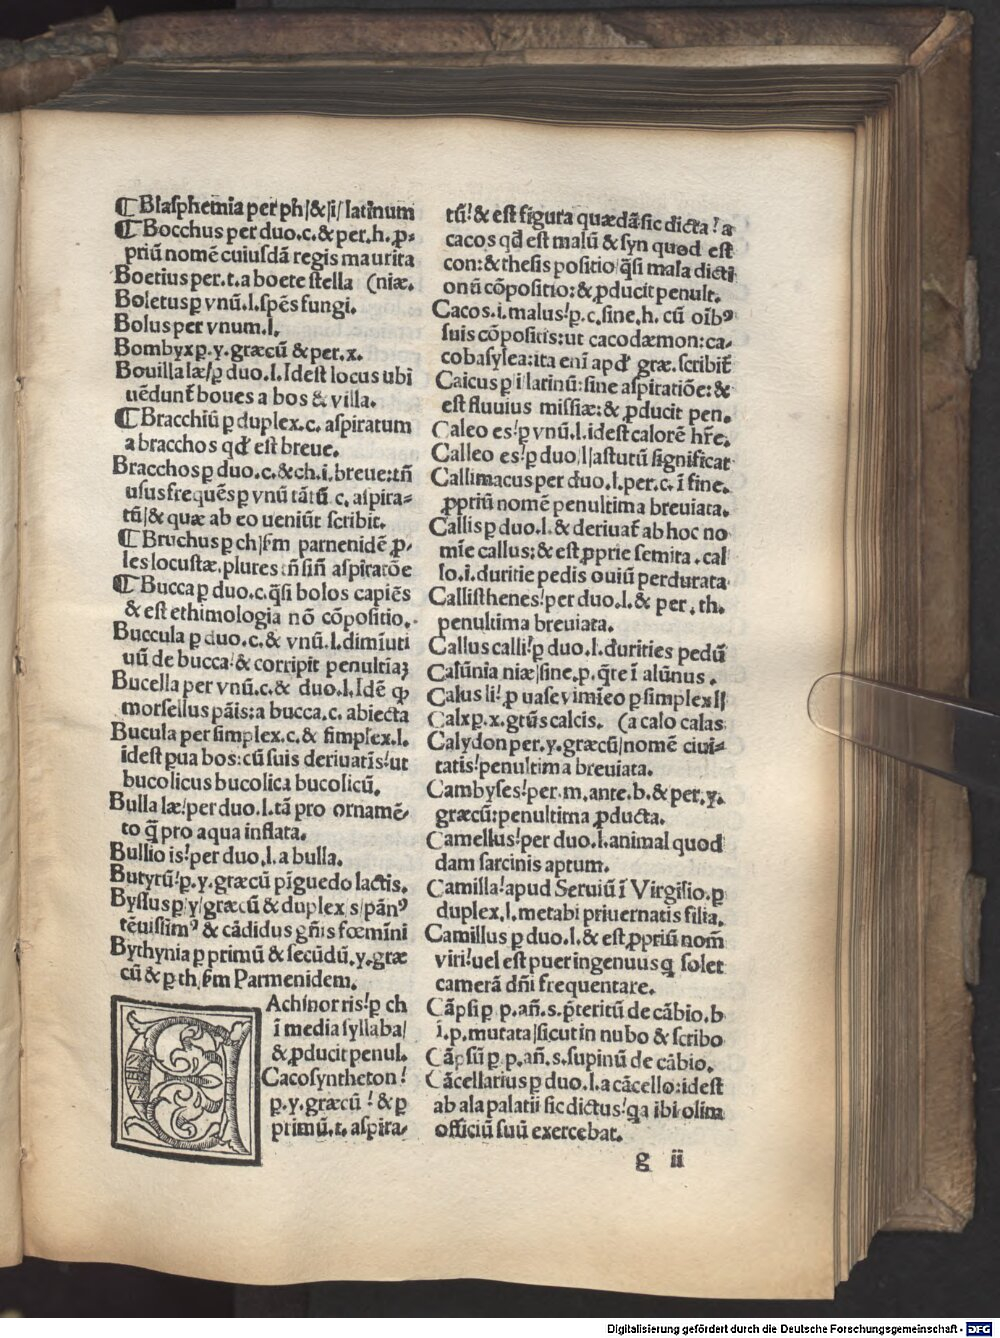 ⁌ Blasphemia per ph/&/i/ latinum
⁌ Bocchus per duo.c.& per.h.ꝓ-
priū nomē cuiusdā regis maurita
Boetius per.t.a boete stella (niæ.
Boletus ꝑ vnū.l.spēs fungi.
Bolus per vnum.l.
Bombyx ꝑ.y.græcū & per.x.
Bouilla læ/ꝑ duo.l.Idest locus ubi
uēdunt̄ boues a bos & villa.
⁌ Bracchiū ꝑ duplex.c. aspiratum
a bracchos qđ est breue.
Bracchos ꝑ duo.c.&ch.i.breue:tn̄
usus frequēs ꝑ vnū tātū c. aspira-
tū/& quæ ab eo ueniūt scribit.
⁌ Bruchus ꝑ ch/sm̄ parnenidē ꝓ-
les locustæ.plures tn̄ sin̄ aspiratōe
⁌ Bucca ꝑ duo.c.q̄si bolos capiēs
& est ethimologia nō cōpositio.
Buccula ꝑ duo.c.& vnū.l.dimīuti
uū de bucca/& corripit penultiaꝫ
Bucella per vnū.c.& duo.l.Idē ꝙ
morsellus pāis:a bucca.c. abiecta
Bucula per simplex.c.& simplex.l.
idest ꝑua bos:cū suis deriuatis!ut
bucolicus bucolica bucolicū.
Bulla læ!per duo.l.tā pro ornamē-
to q̄ pro aqua inflata.
Bullio is!per duo.l.a bulla.
Butyrū!ꝑ.y.græcū pīguedo lactis.
Byssus ꝑ/y/græcū & duplex/s/pānꝰ
tēuissimꝰ & cādidus gn̄is fœmīni
Bythynia ꝑ primū & secūdū.y.græ
cū & ꝑ th/sm̄ Parmenidem.
CAchinor ris!ꝑ ch
ī media syllaba/
& ꝓducit penul.
Cacosyntheton!
ꝑ.y.græcū ! & ꝑ
primū.t. aspira-
tū!& est figura quædā:sic dicta!a
cacos qđ est malū & syn quod est
con:& thesis positio/q̄si mala dicti
onū cōpositio:& ꝓducit penult.
Cacos.i.malus!ꝑ.c.sine.h. cū oībꝰ
suis cōpositis:ut cacodæmon:ca-
cobasylea:ita enī apđ græ. scribit̄
Caicus ꝑ/i/latinū:sine aspiratiōe:&
est fluuius missiæ:& ꝓducit pen.
Caleo es!ꝑ vnū.l.idest calorē hr̄e.
Calleo es!ꝑ duo/l/astutū significat
Callimacus per duo.l.per.c.ī fine.
ꝓpriū nomē penultima breuiata.
Callis ꝑ duo.l.& deriuat̄ ab hoc no
mīe callus:& est ꝓprie semita.cal
lo.i.duritie pedis ouiū perdurata
Callisthenes!per duo.l.& per.th.
penultima breuiata.
Callus calli!ꝑ duo.l.durities pedū
Calūnia niæ/sine.p.q̄re ī alūnus.
Calus li!ꝑ uase vimīeo ꝑ simplex l/
Calx ꝑ.x.gtūs calcis. (a calo calas
Calydon per.y.græcū/nomē ciui-
tatis!penultima breuiata.
Cambyses!per.m.ante.b.& per.y.
græcū:penultima ꝓducta.
Camellus!per duo.l.animal quod
dam sarcinis aptum.
Camilla!apud Seruiū ī Virgilio.ꝑ
duplex.l.metabi priuernatis filia.
Camillus ꝑ duo.l.& est ꝓpriū nom̄
viri!uel est puer ingenuus q̄ solet
camerā dn̄i frequentare.
Cāpsi ꝑ p.an̄.s.p̄teritū de cābio.b
ī.p.mutata/sicut in nubo & scribo
Cāpsū ꝑ p.an̄.s.supinū de cābio.
Cācellarius ꝑ duo.l.a cācello:idest
ab ala palatii sic dictus!qa ibi olim
officiū suū exercebat.
g ii
Digitalisierung gefördert durch die Deutsche Forschungsgemeinschaft - DFG